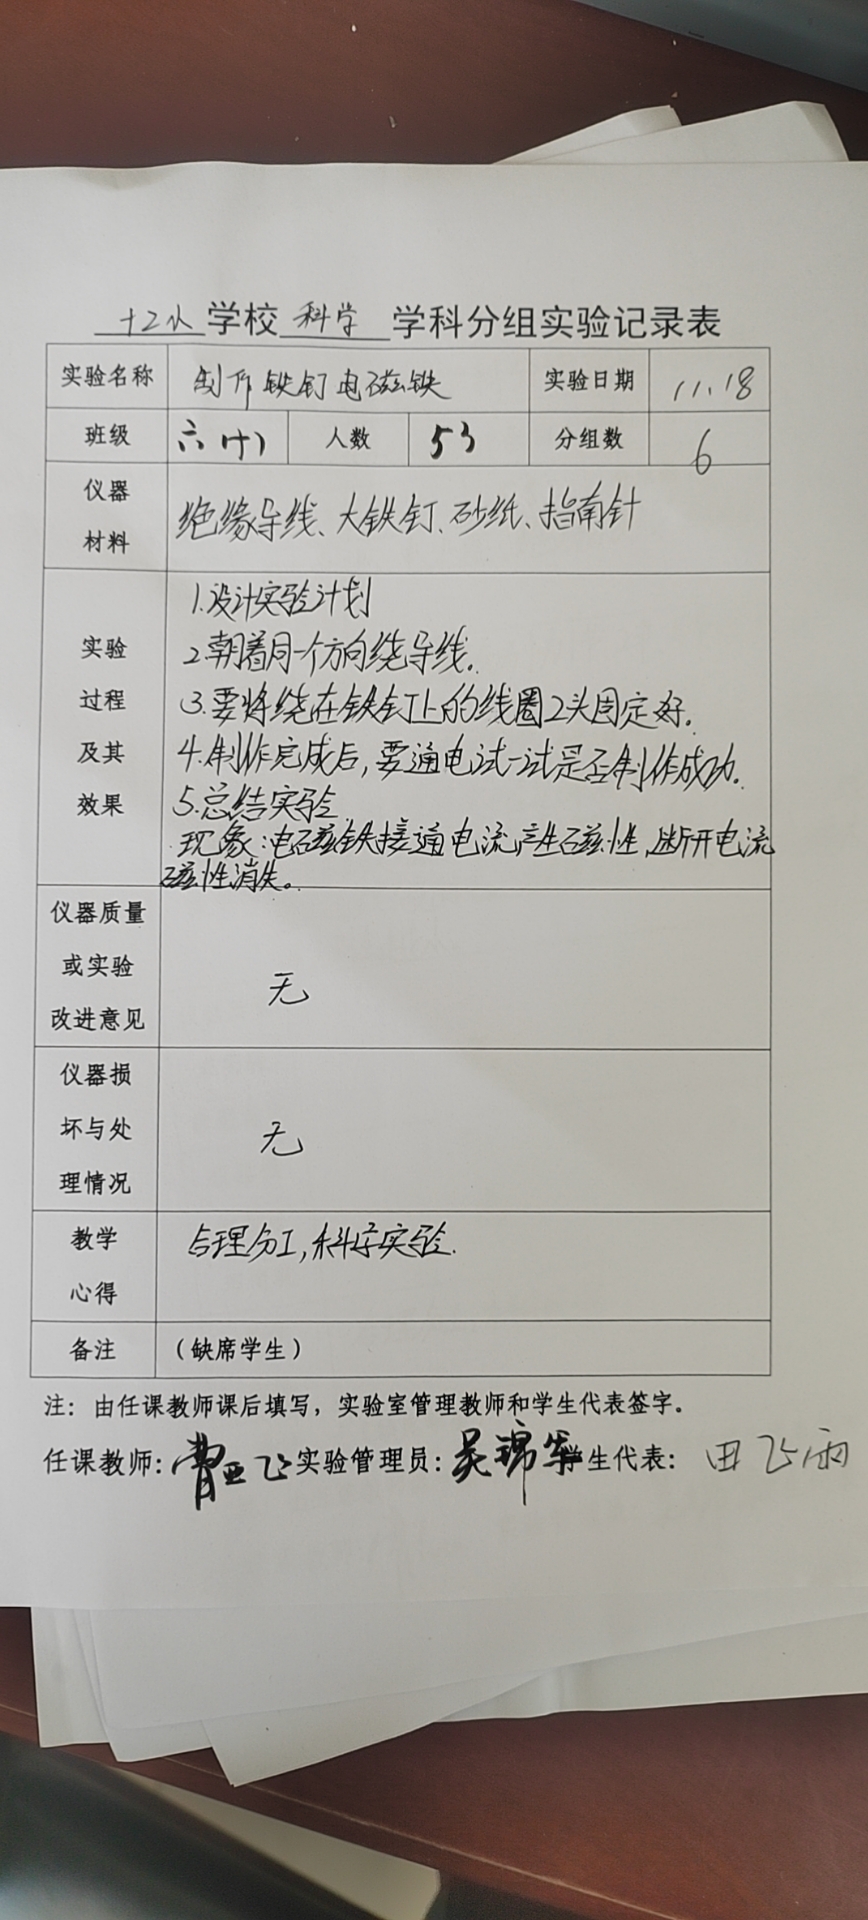 十二小学校 科学 学科分组实验记录表
实验名称 制作铁钉电磁铁 实验日期 11.18
班级 六(十) 人数 53 分组数 6
仪器材料 绝缘导线、大铁钉、砂纸、指南针
实验过程及其效果
1.设计实验计划
2.朝着同一个方向绕导线。
3.要将绕在铁钉上的线圈2头固定好。
4.制作完成后,要通电试一试是否制作成功。
5.总结实验
现象:电磁铁接通电流产生磁性,断开电流
磁性消失。
仪器质量或实验改进意见 无
仪器损坏与处理情况 无
教学心得 合理分工,科学实验.
备注 (缺席学生)
注:由任课教师课后填写,实验室管理教师和学生代表签字。
任课教师:曹亚飞 实验管理员:吴锦华 学生代表:田飞雨